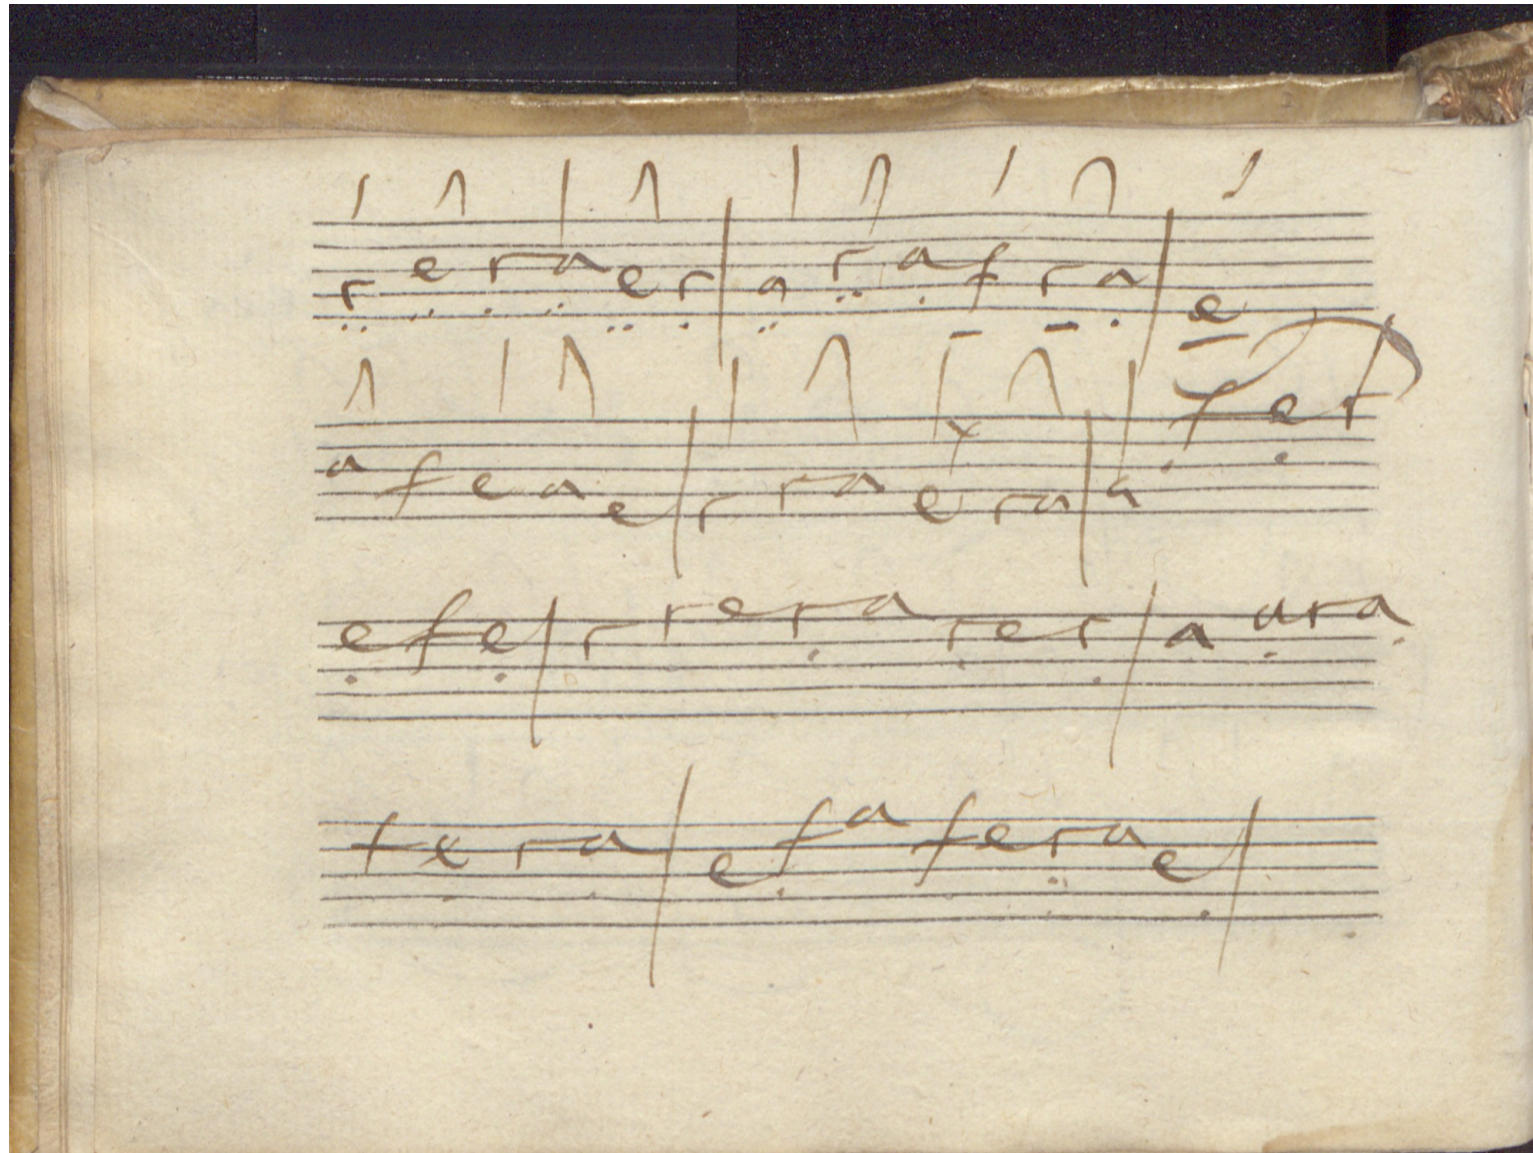 r e r a e r | a r a f r a | e
a f e a e | r r a e r a | a f e r
e f e | r r e r a r e r | a a r a
f x r a | e f a f e r a e |